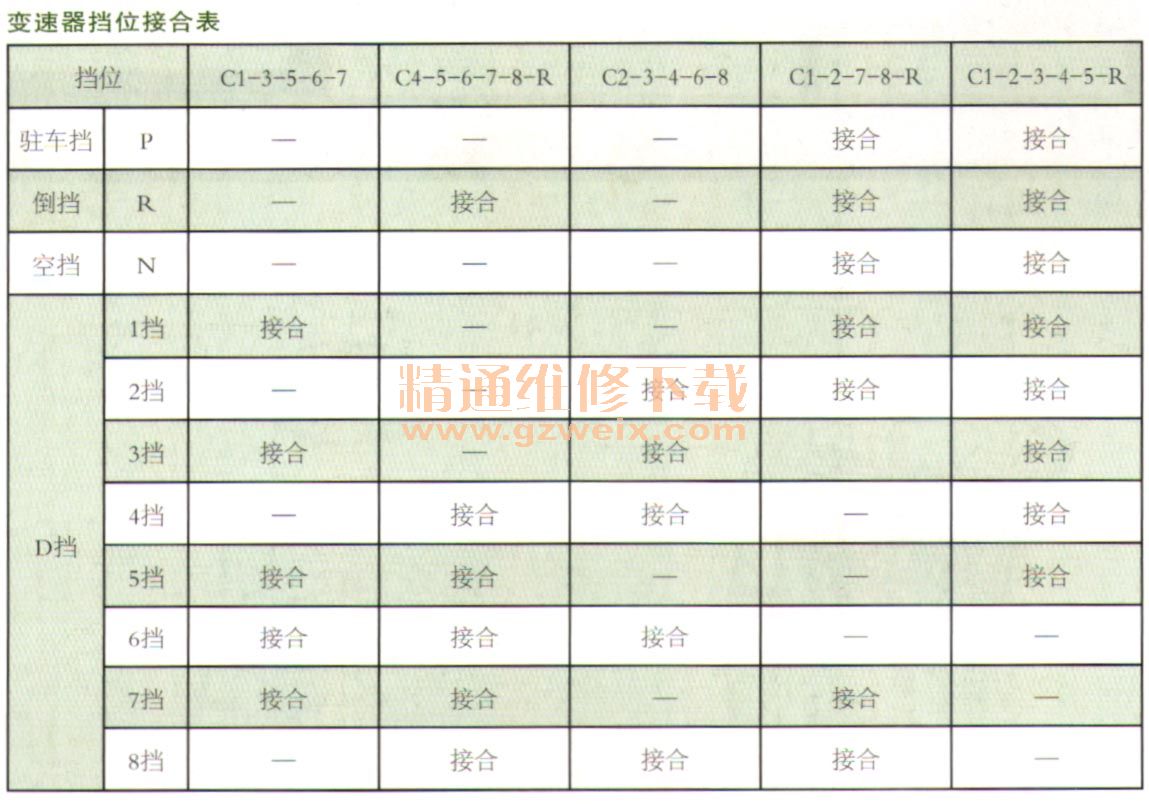 变速器挡位接合表
挡位 C1-3-5-6-7 C4-5-6-7-8-R C2-3-4-6-8 C1-2-7-8-R C1-2-3-4-5-R
驻车挡 P — — — 接合 接合
倒挡 R — 接合 — 接合 接合
空挡 N — — — 接合 接合
D挡
1挡 接合 — — 接合 接合
2挡 — — 接合 接合 接合
3挡 接合 — 接合 接合
4挡 — 接合 接合 — 接合
5挡 接合 接合 — — 接合
6挡 接合 接合 接合 — —
7挡 接合 接合 — 接合 —
8挡 — 接合 接合 接合 —
精通维修下载
www.gzweix.com